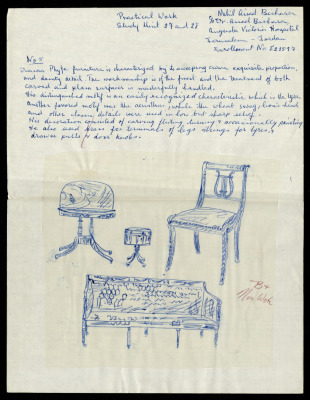 Practical Work
Study Unit 27 and 28
Nabil Anod Bukhari
Augusta Victoria Hospital
Jerusalem - Jordan
Enrollment No.
No 5
Duncan Phyfe furniture is characterized by a sweeping curve, exquisite proportion,
and dainty detail. The workmanship is of the finest and the treatment of both
carved and plain surfaces is wonderfully handled.
His distinguished motif is an easily recognized characteristic, which is the lyre.
Another favored motif was the acanthus, while the wheat swag, lion's head
and other classic details were used in low but sharp relief.
His decoration consisted of carving, fluting, veneering & occasionally painting
He also used brass for terminals of legs, strings for lyres,
drawer pulls & door knobs.
B+